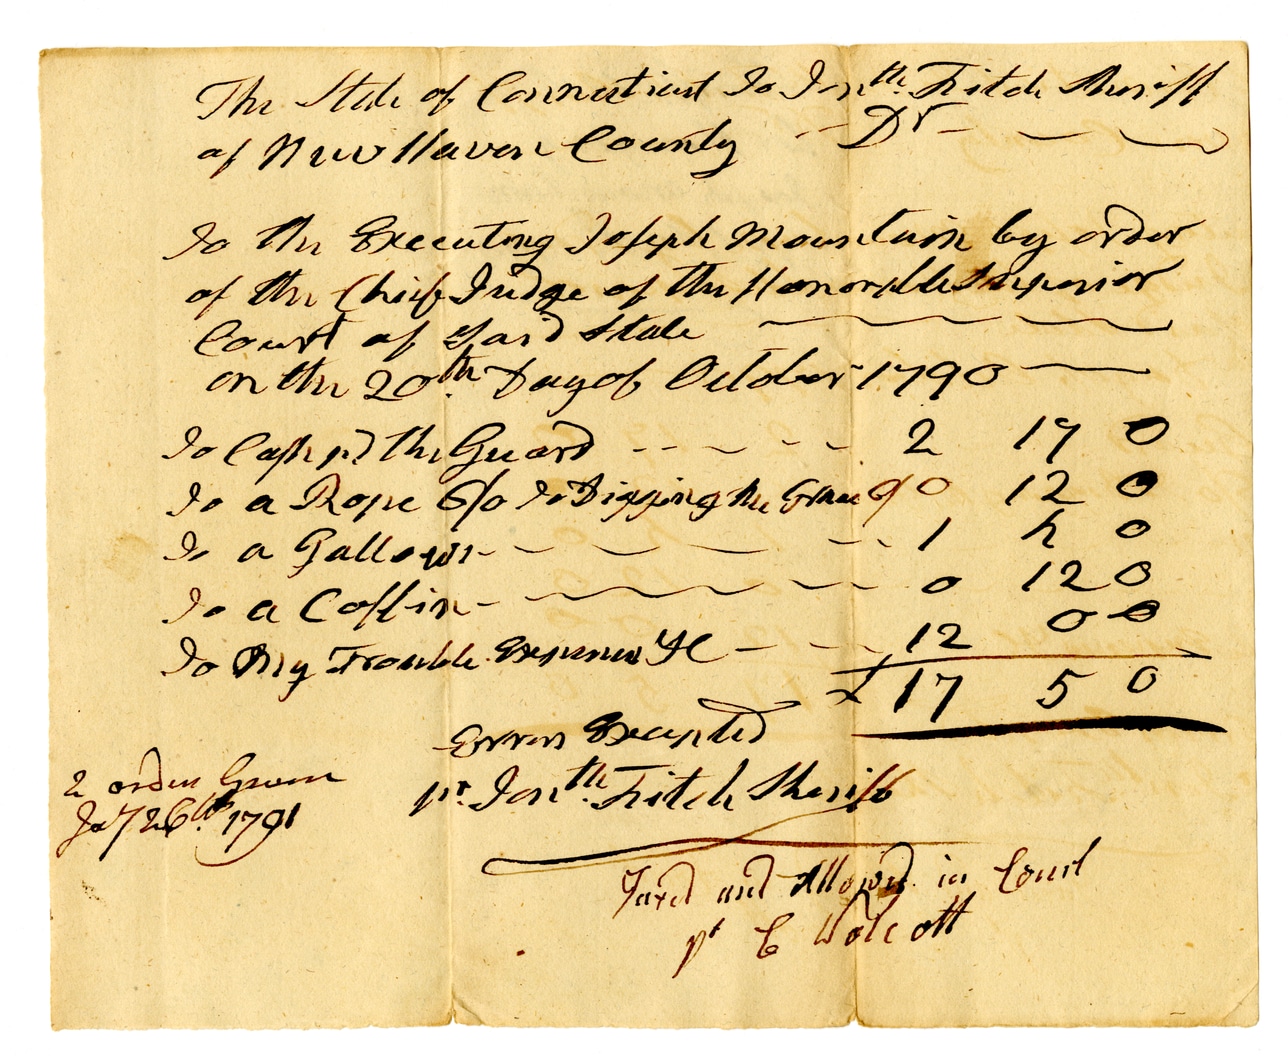 The State of Connecticut To Jonth. Fitch Sheriff
of New Haven County -- Dr --
To the Executing Joseph Mountain by order
of the Chief Judge of the Honorable Superior
Court of Said State
on the 20th. Day of October 1790
To Cash pd the Guard ---- 2 17 0
To a Rope 6/0 To Digging the Grave 6/ 0 12 0
To a Gallows ---- 1 4 0
To a Coffin ---- 0 12 0
To My Trouble Expenses &C --- 12 0 0
£ 17 5 0
Errors Excepted
pr. Jonth. Fitch Sheriff
2 orders Given
Jay 26th. 1791
Taxed and Allowed in Court
pr Wolcott